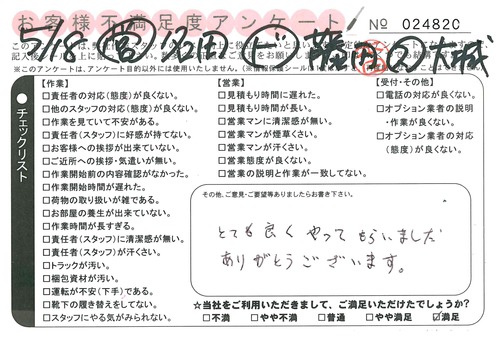 お客様不満足度アンケート
№ 024820
5/18
※このアンケートは、アンケート目的以外には使用いたしません。
チェックリスト
【作業】
□責任者の対応(態度)が良くない。
□他のスタッフの対応(態度)が良くない。
□作業を見ていて不安がある。
□責任者(スタッフ)に好感が持てない。
□お客様への挨拶が出来ていない。
□ご近所への挨拶・気遣いが無い。
□作業開始前の内容確認がなかった。
□作業開始時間が遅れた。
□荷物の取り扱いが雑である。
□お部屋の養生が出来ていない。
□作業時間が長すぎる。
□責任者(スタッフ)に清潔感が無い。
□責任者(スタッフ)が汗くさい。
□トラックが汚い。
□梱包資材が汚い。
□運転が不安(下手)である。
□靴下の履き替えをしてない。
□スタッフにやる気がみられない。
【営業】
□見積もりに遅れた。
□見積もり時間が長い。
□営業マンに清潔感が無い。
□営業マンが煙草くさい。
□営業マンが汗くさい。
□営業態度が良くない。
□営業の説明と作業が一致してない。
【受付・その他】
□電話の対応が良くない。
□オプション業者の説明
・作業が良くない。
□オプション業者の対応
(態度)が良くない。
その他、ご意見・ご要望等ありましたらお書き下さい。
とても良くやってもらいました
ありがとうございます。
☆当社をご利用いただきまして、ご満足いただけたでしょうか？
□不満 □やや不満 □普通 □やや満足 ☑満足